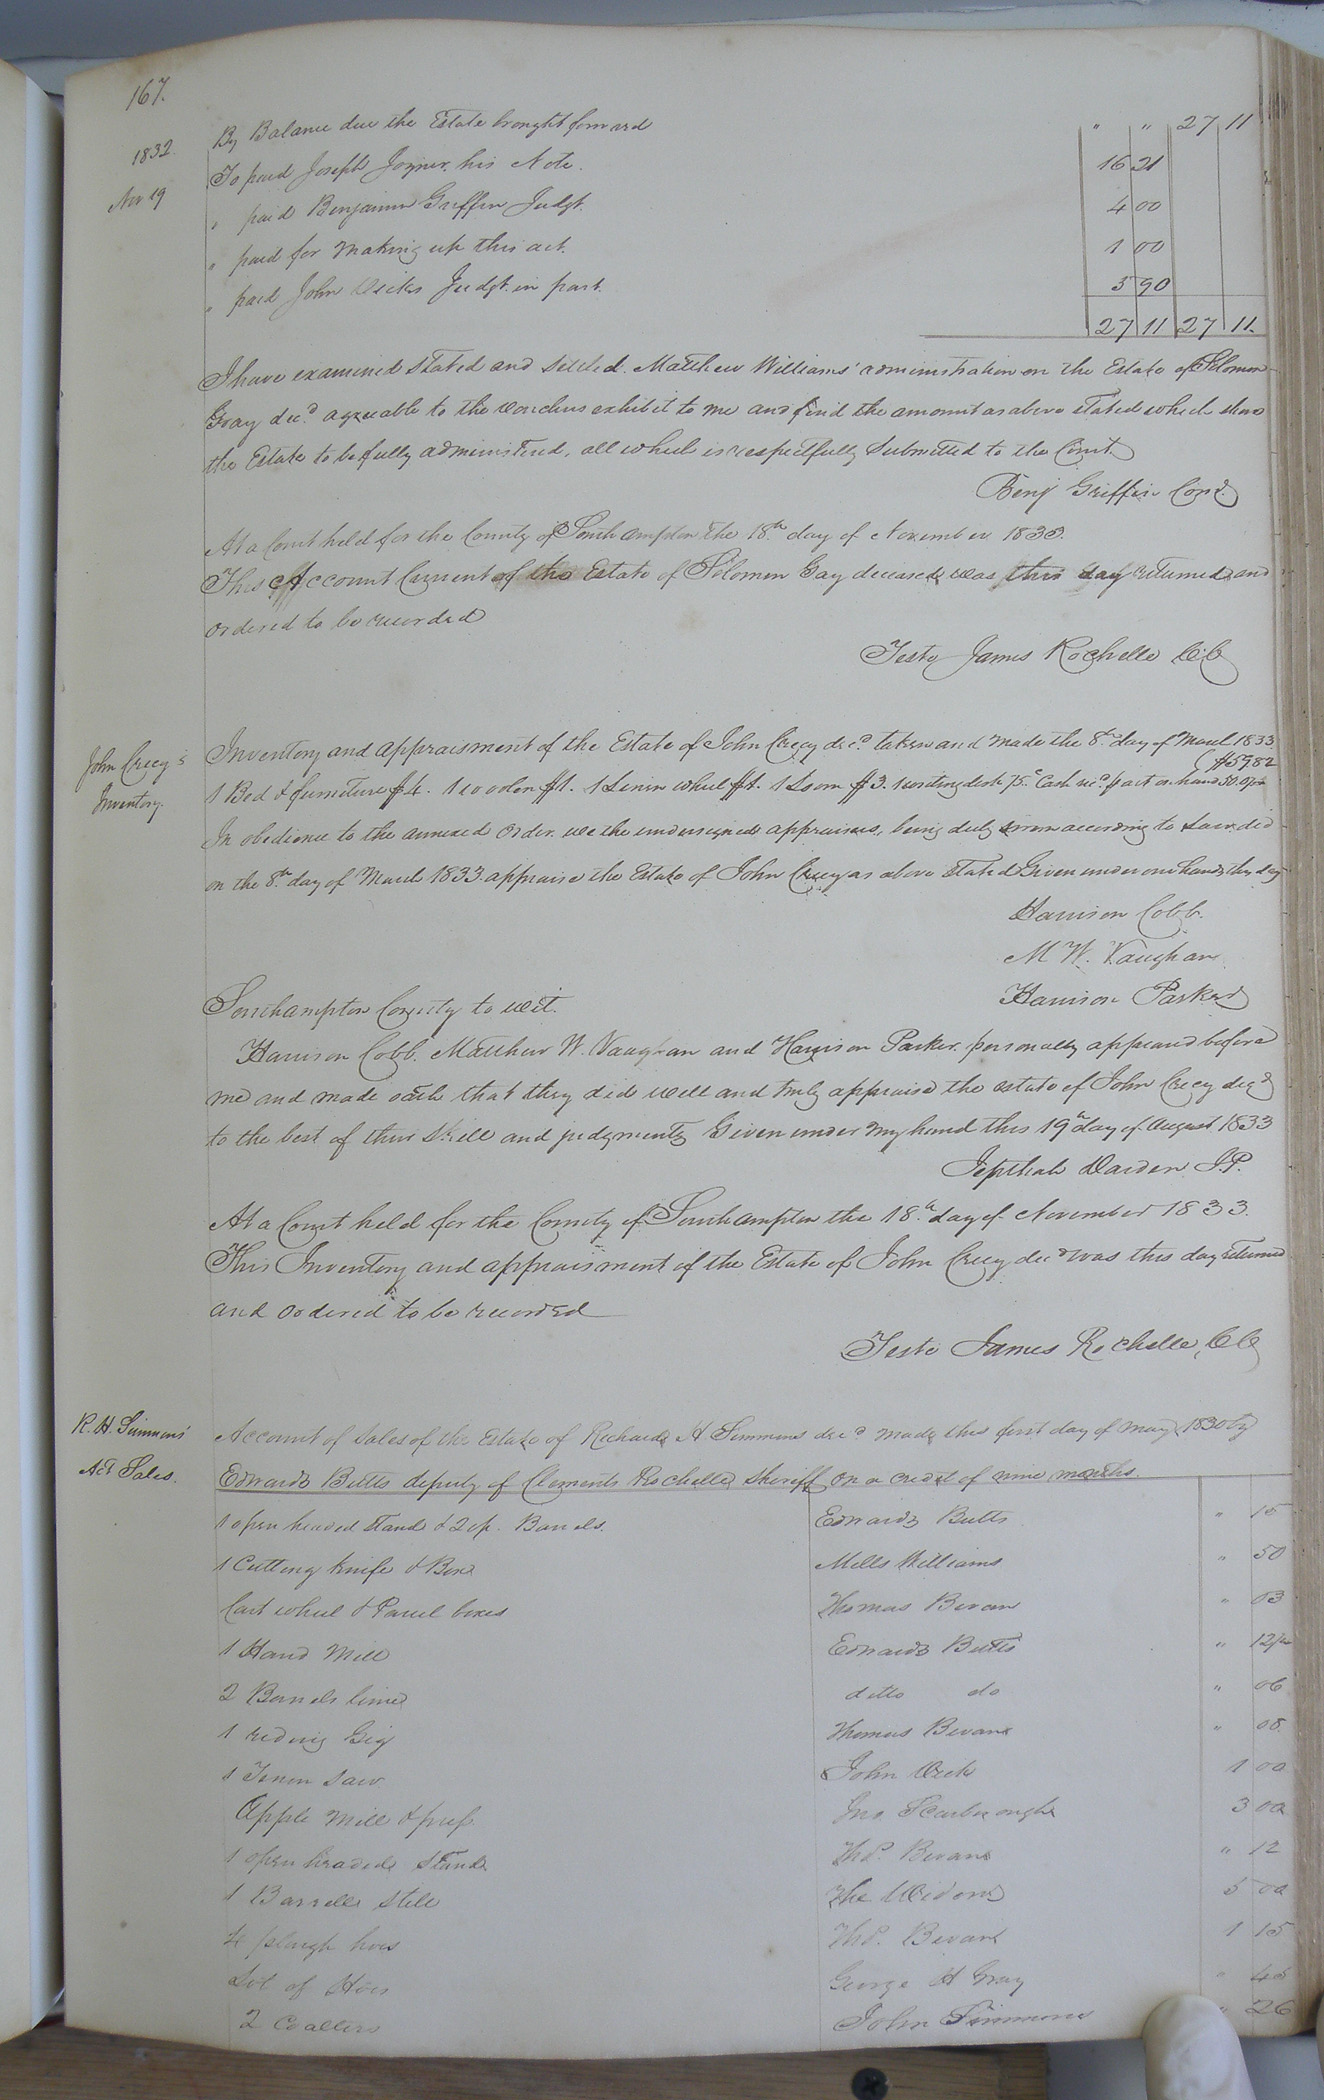 167.
By Balance due the Estate brought forward " " 27 11
1832 To paid Joseph Joyner his Note. 16 21
Nov 19 " paid Benjamin Griffin Judgt. 4 00
" paid for Making up this act. 1 00
" paid John Judgt. in part. 5 90
27 11 27 11
I have examined Stated and settled Matthew Williams' administration on the Estate of Solomon
Gray decd. agreeable to the vouchers exhibit to me and find the amount as above stated which shows
the Estate to be fully administered, all which is respectfully Submitted to the Court
Benj Griffin Comr.
At a Court held for the County of Southampton the 18th. day of November 1833.
This Account Current of the Estate of Solomon Gay deceased was this day returned and
ordered to be recorded
Teste James Rochelle CC
John Crecy's Inventory and appraisment of the Estate of John Crecy decd. taken and made the 8th. day of March 1833
Inventory. $59.82
1 Bed & furniture $4. 1 woolen $1. 1 Linen wheel $1. 1 Loom $3. 1 writing desk 75c. Cash recd. p act on hand
In obedience to the annexed order we the undersigned appraisers, being duly sworn according to Law did
on the 8th. day of March 1833. appraise the Estate of John Crecy as above Stated Given under our hands this day
Harrison Cobb.
M W. Vaughan
Southampton County to wit. Harrison Parker
Harrison Cobb. Matthew W. Vaughan and Harrison Parker, personally appeared before
me and made oath that they did well and truly appraise the estate of John Crecy decd
to the best of their Skill and judgments Given under my hand this 19th day of August 1833
Jepthah Darden J.P.
At a Court held for the County of Southampton the 18th. day of November 1833.
This Inventory and appraisment of the Estate of John Crecy decd was this day returned
and ordered to be recorded
Teste James Rochelle, CC
R. H. Simmons' Account of Sales of the Estate of Richard H Simmons decd made this first day of May 1830 by
Act Sales. Edwards Butts deputy of Clements Rochelle Sheriff on a credit of nine months.
1 open headed Stand & 2 op. Barrels. Edwards Butts " 15
1 Cutting Knife & Box Mills Williams " 50
Cart wheel & Parcel boxes Thomas Bevan " 03
1 Hand Mill Edwards Butts " 12½
2 Barrels lime ditto do " 06
1 riding Gig Thomas Bevans " 08
1 Tenon Saw John 1 00
Apple Mill & press Jno Scarborough 3 00
1 open headed Stand Thos. Bevans " 12
1 Barrell Still The Widow 5 00
4 plough hoes Thos. Bevans 1 15
Lot of Hoes George H Gray " 45
2 Coalters John Simmons " 26